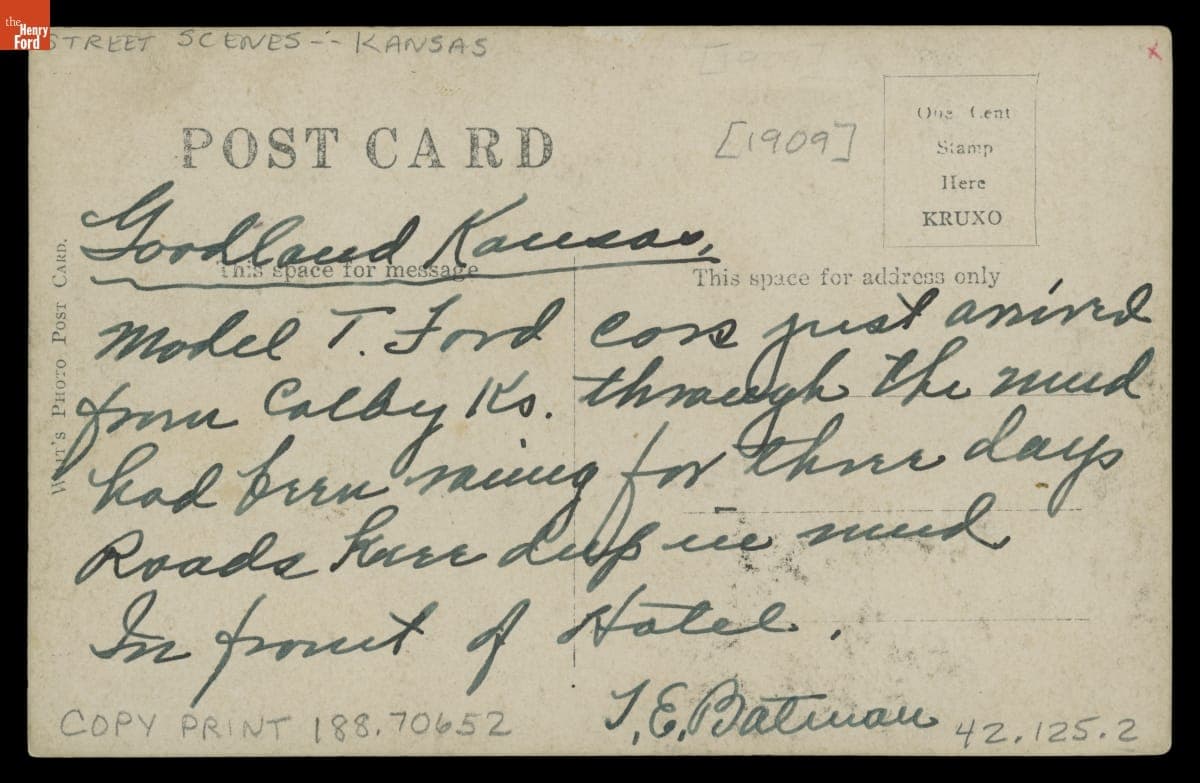 the
Henry
Ford
STREET SCENES -- KANSAS
[1909]
POST CARD
One Cent
Stamp
Here
KRUXO
Goodland Kansas,
This space for message
This space for address only
Model T. Ford cars just arrived
from Colby Ks. through the mud
had been raining for three days
Roads knee deep in mud
In front of Hotel.
T. E. Batman
COPY PRINT 188.70652
42.125.2
PHOTO POST CARD.